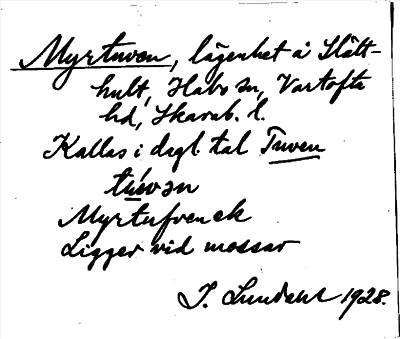 Myrtuven, lägenhet å Slätt-
hult, Habo sn, Vartofta
hd, Skarab. l.
Kallas i dagl. tal Tuven
túvən
Myrtufvenek
Ligger vid mossar
J. Lundahl 1928.